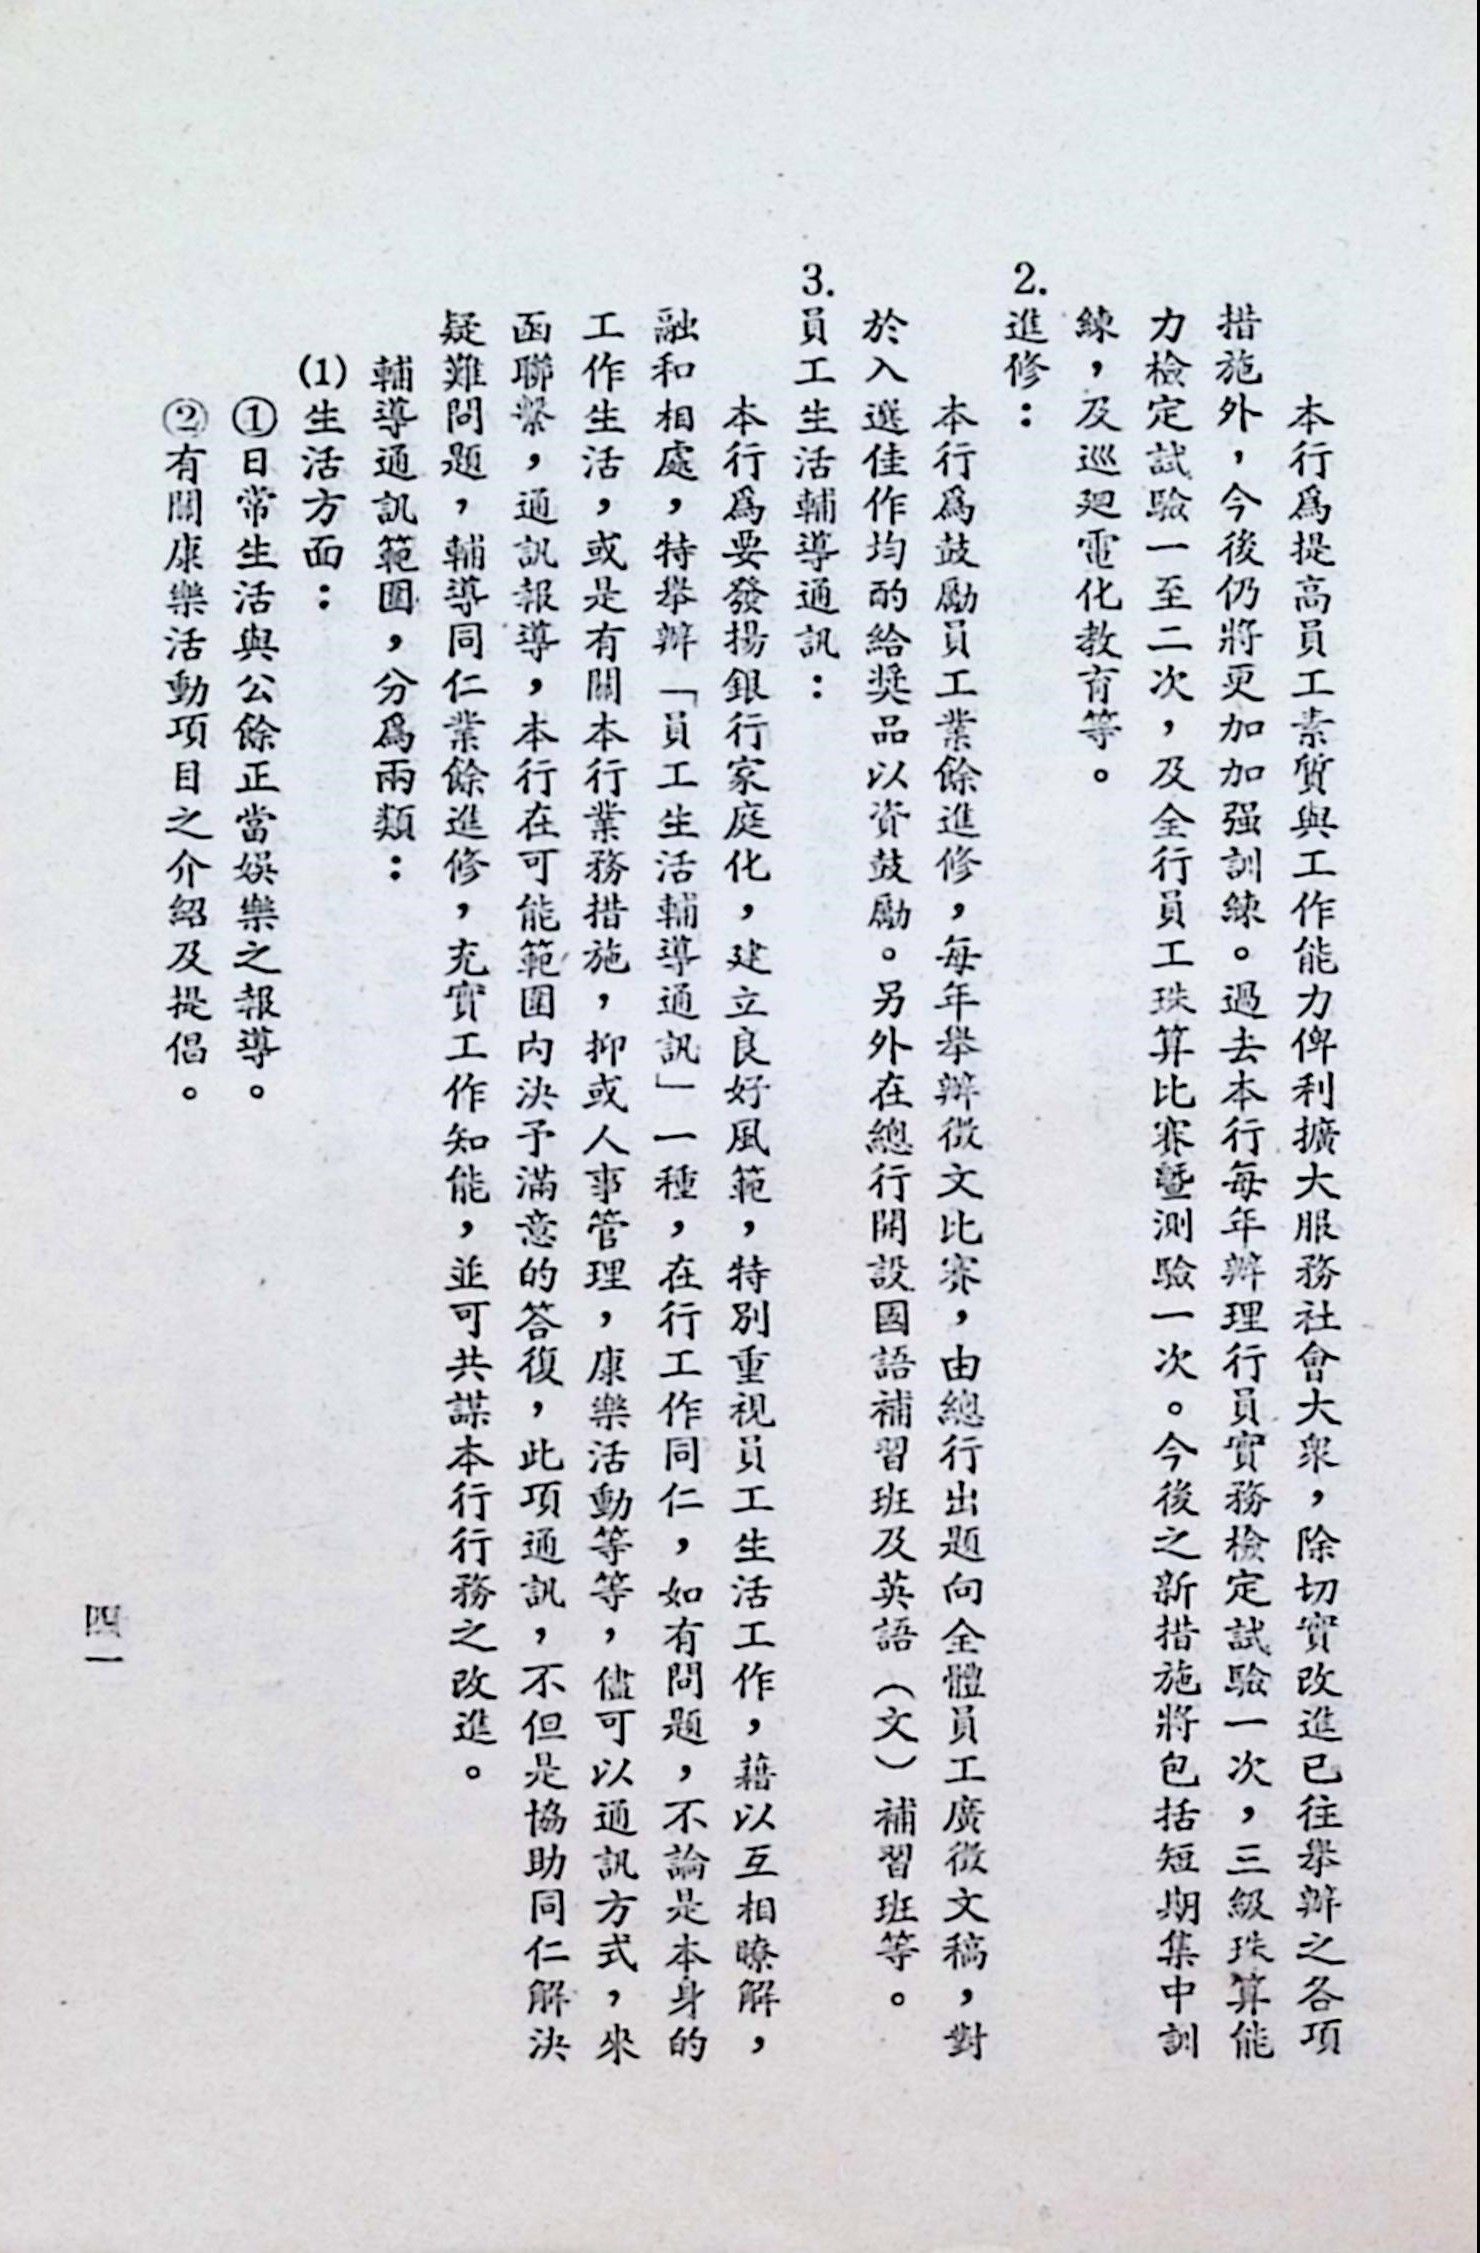 本行爲提高員工素質與工作能力俾利擴大服務社會大衆，除切實改進已往舉辦之各項
措施外，今後仍將更加加强訓練。過去本行每年辦理行員實務檢定試驗一次，三級珠算能
力檢定試驗一至二次，及全行員工珠算比賽暨測驗一次。今後之新措施將包括短期集中訓
練，及巡廻電化教育等。
2.進修：
本行爲鼓勵員工業餘進修，每年舉辦徵文比賽，由總行出題向全體員工廣徵文稿，對
於入選佳作均酌給獎品以資鼓勵。另外在總行開設國語補習班及英語（文）補習班等。
3.員工生活輔導通訊：
本行爲要發揚銀行家庭化，建立良好風範，特別重視員工生活工作，藉以互相瞭解，
融和相處，特舉辦「員工生活輔導通訊」一種，在行工作同仁，如有問題，不論是本身的
工作生活，或是有關本行業務措施，抑或人事管理，康樂活動等等，儘可以通訊方式，來
函聯繫，通訊報導，本行在可能範圍內決予滿意的答復，此項通訊，不但是協助同仁解決
疑難問題，輔導同仁業餘進修，充實工作知能，並可共謀本行行務之改進。
輔導通訊範圍，分爲兩類：
(1)生活方面：
①日常生活與公餘正當娛樂之報導。
②有關康樂活動項目之介紹及提倡。
四一